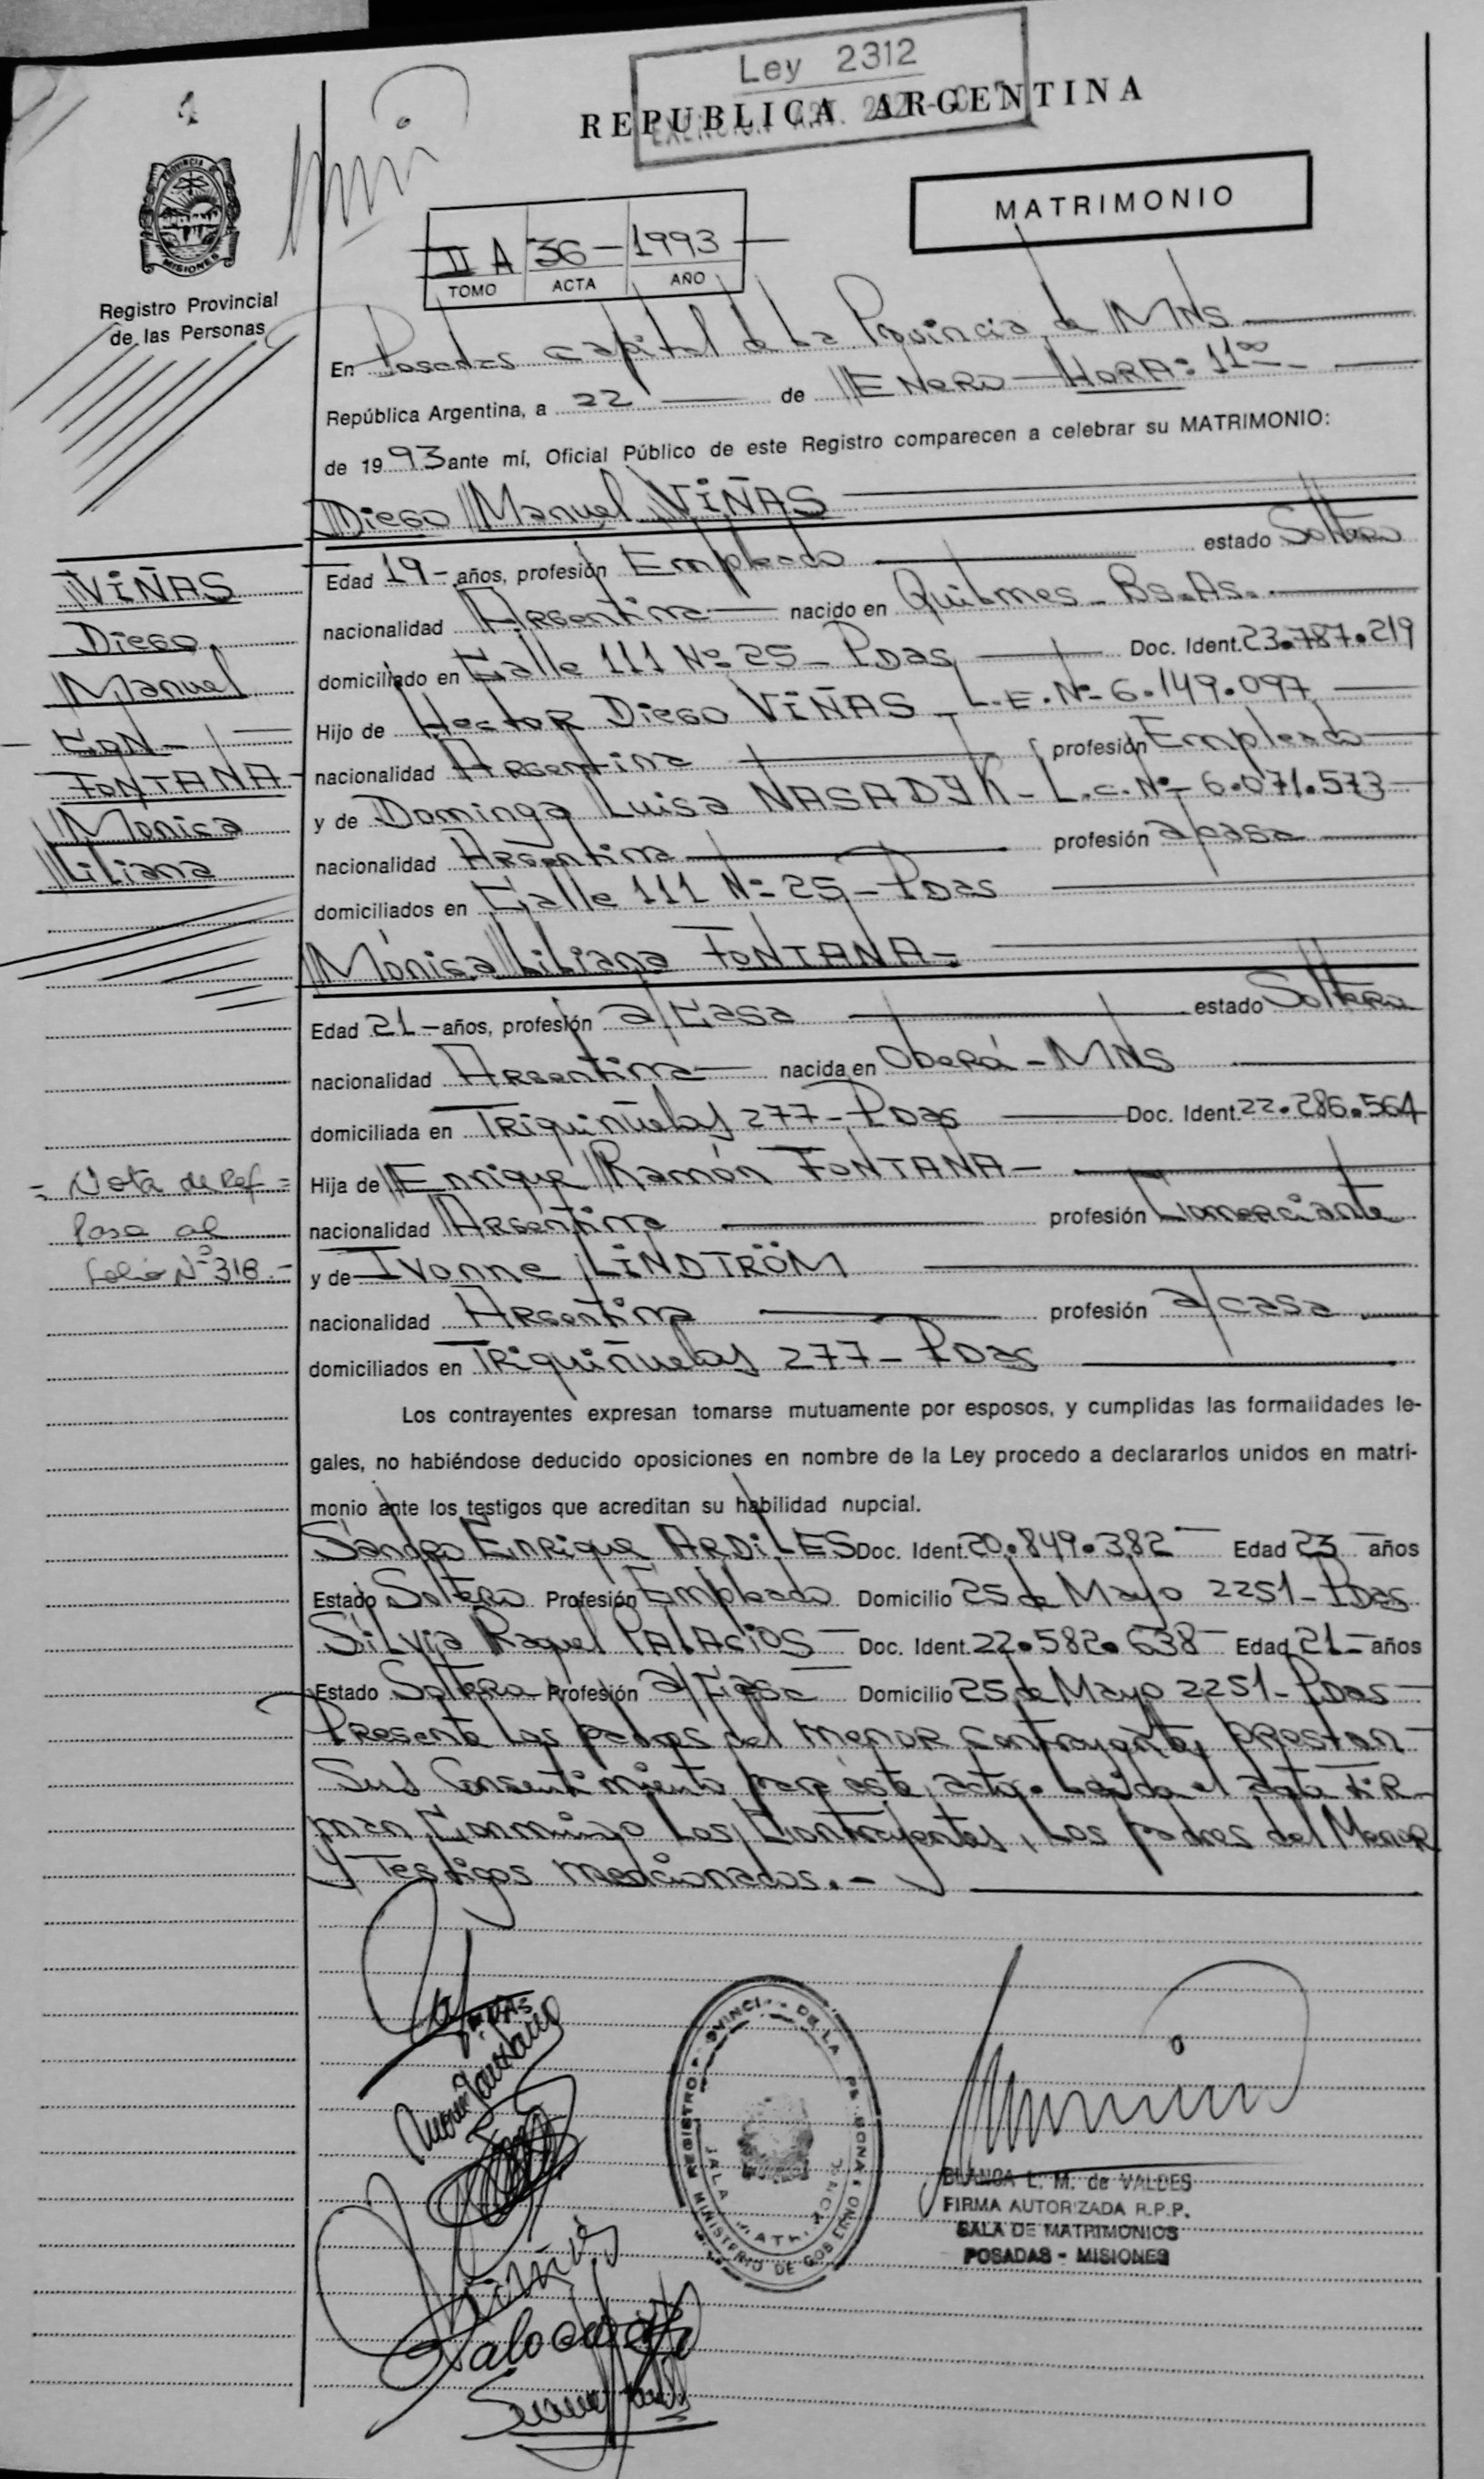 Ley 2312
REPUBLICA ARGENTINA
MATRIMONIO
PROVINCIA
MISIONES
Registro Provincial
de las Personas
II A 36 - 1993
TOMO ACTA AÑO
En Posadas capital de La Provincia de MNS
República Argentina, a 22 de ENERO HORA: 11ºº
de 1993 ante mí, Oficial Público de este Registro comparecen a celebrar su MATRIMONIO:
Diego Manuel VIÑAS
VIÑAS
Diego
Manuel
- CON -
FONTANA
Monica
Liliana
Edad 19 - años, profesión Empleado estado Soltero
nacionalidad Argentina nacido en Quilmes - Bs. As.
domiciliado en Calle 111 Nº 25 - Pdas Doc. Ident. 23.787.219
Hijo de Hector Diego VIÑAS - L.E. Nº 6.149.097
nacionalidad Argentina profesión Empleado
y de Dominga Luisa NASADYK - L.C. Nº 6.071.573
nacionalidad Argentina profesión a/casa
domiciliados en Calle 111 Nº 25 - Pdas
Mónica Liliana FONTANA -
Edad 21 - años, profesión a/casa estado Soltera
nacionalidad Argentina nacida en Oberá - MNS
domiciliada en Triquiñuelas 277 - Pdas Doc. Ident. 22.286.564
Hija de Enrique Ramón FONTANA -
nacionalidad Argentina profesión Comerciante
y de Ivonne LINDTRÖM
nacionalidad Argentina profesión a/casa
domiciliados en Triquiñuelas 277 - Pdas
= Nota de Ref =
Pasa al
folio Nº 318.-
Los contrayentes expresan tomarse mutuamente por esposos, y cumplidas las formalidades le-
gales, no habiéndose deducido oposiciones en nombre de la Ley procedo a declararlos unidos en matri-
monio ante los testigos que acreditan su habilidad nupcial.
Sandro Enrique ARDILES Doc. Ident. 20.849.382 Edad 23 años
Estado Soltero Profesión Empleado Domicilio 25 de Mayo 2251 - Pdas
Silvia Raquel PALACIOS Doc. Ident. 22.582.638 Edad 21 - años
Estado Soltera Profesión a/casa Domicilio 25 de Mayo 2251 - Pdas
Presente los padres del menor contrayente, prestan
Sus Consentimiento para éste acto. Leída el acta FIR-
man Conmigo Los Contrayentes, Los padres del Menor
y Testigos mencionados.-
REGISTRO PROVINCIAL DE LAS PERSONAS
MINISTERIO DE GOBIERNO
BLANCA L. M. de VALDES
FIRMA AUTORIZADA R.P.P.
SALA DE MATRIMONIOS
POSADAS - MISIONES